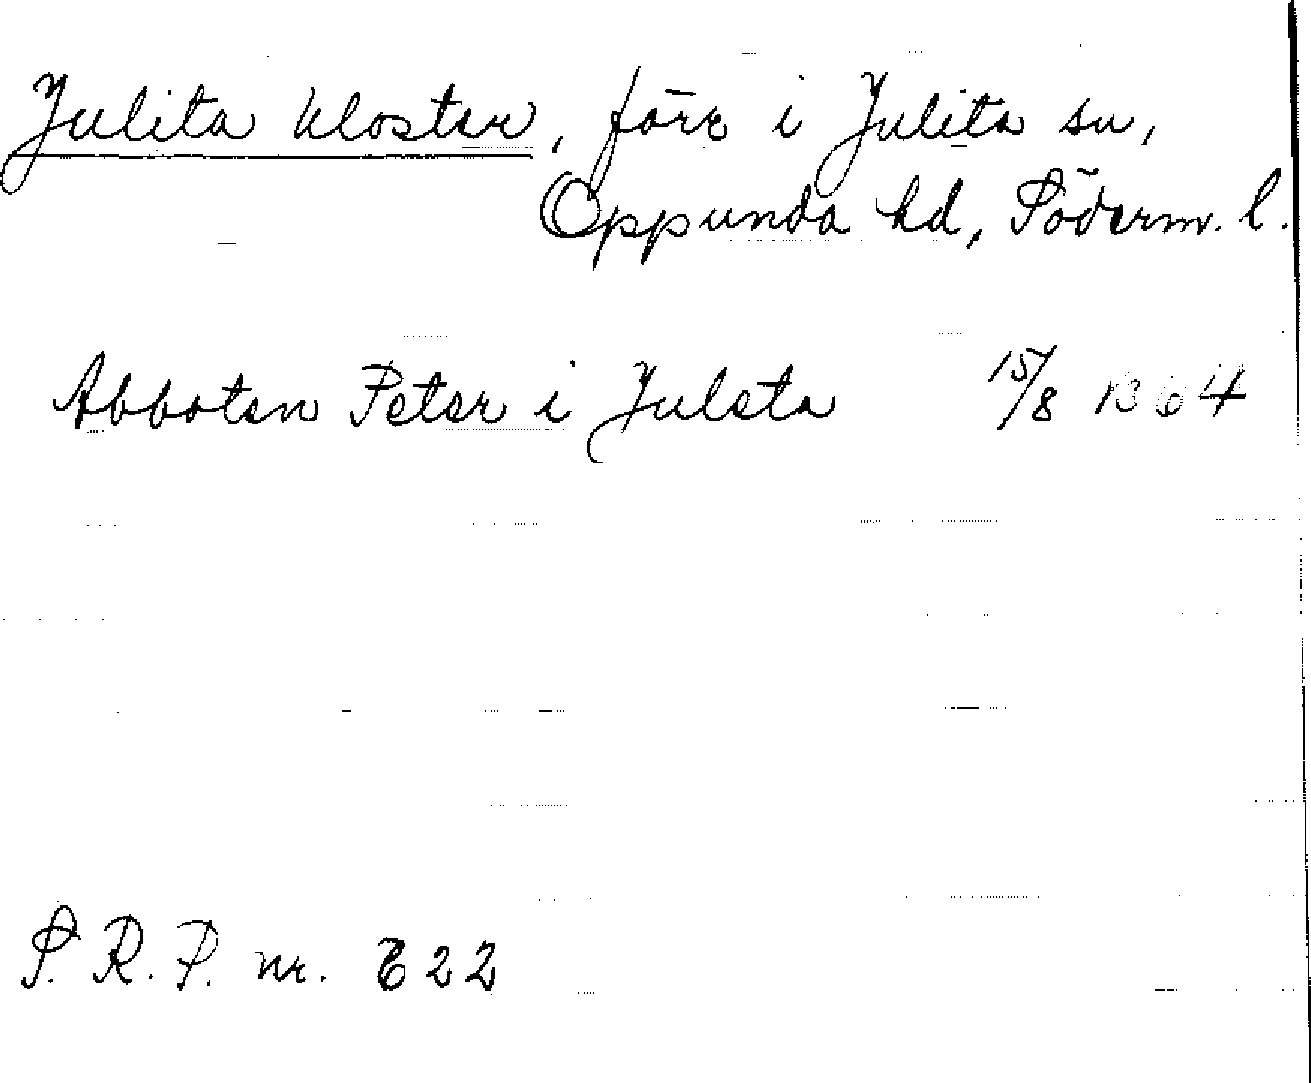 Julita kloster, före i Julita sn,
Oppunda hd, Söderm. l.
Abboten Peter i Juleta 15/8 1364
S. R. P. nr. 622